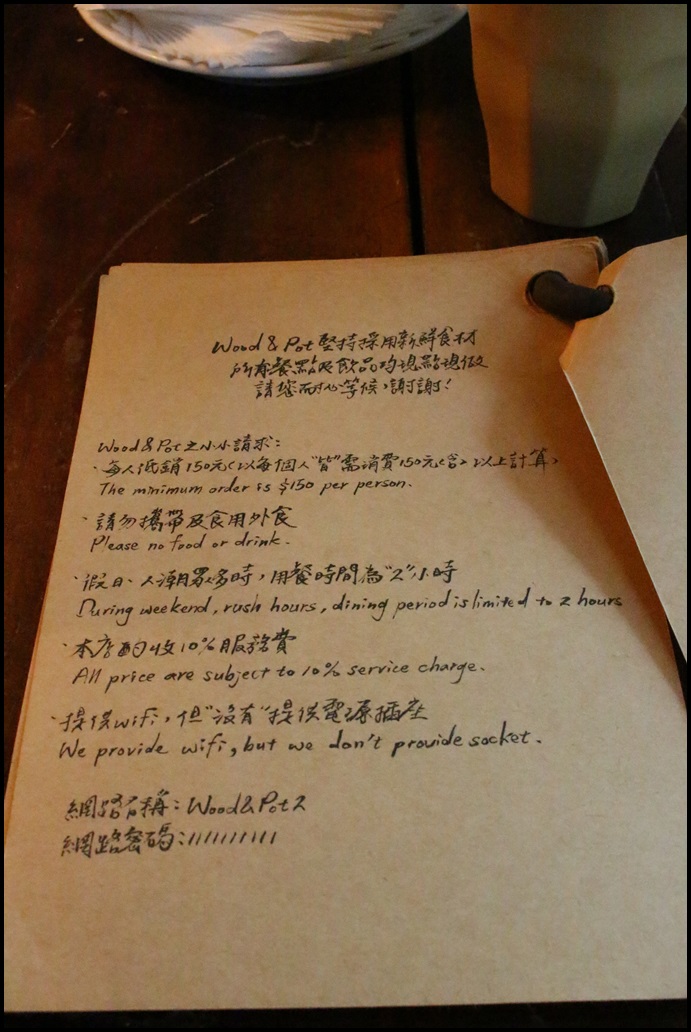 Wood & Pot 堅持採用新鮮食材
所有餐點及飲品均現點現做
請您耐心等候,謝謝!
Wood & Pot 之小小請求:
·每人低銷150元(以每個人"皆"需消費150元<含>以上計算)
The minimum order is $150 per person.
·請勿攜帶及食用外食
Please no food or drink.
·假日、人潮眾多時,用餐時間為"2"小時
During weekend, rush hours, dining period is limited to 2 hours
·本店酌收10%服務費
All price are subject to 10% service charge.
·提供wifi,但"沒有"提供電源插座
We provide wifi, but we don't provide socket.
網路名稱:Wood&Pot2
網路密碼:1111111111